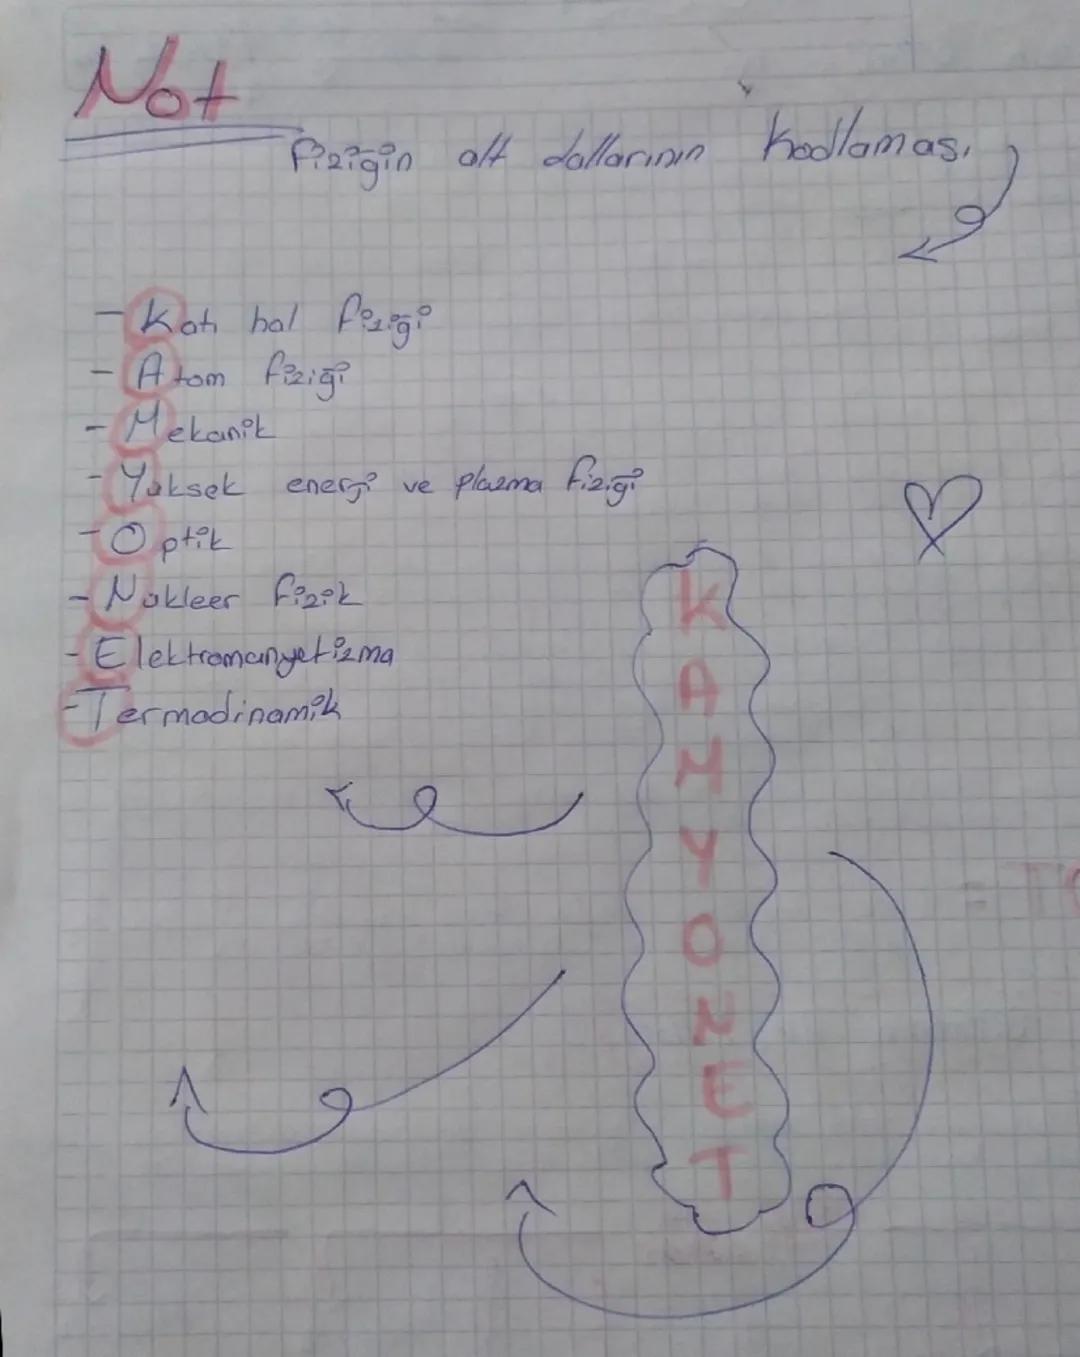 Not
fiziğin alt dallarının kodlaması
- Katı hal fiziği
- Atom fiziği
- Mekanik
- Yüksek enerji ve plazma fiziği
- Optik
- Nükleer fizik
- Elektromanyetizma
- Termodinamik
K
A
M
Y
O
N
E
T